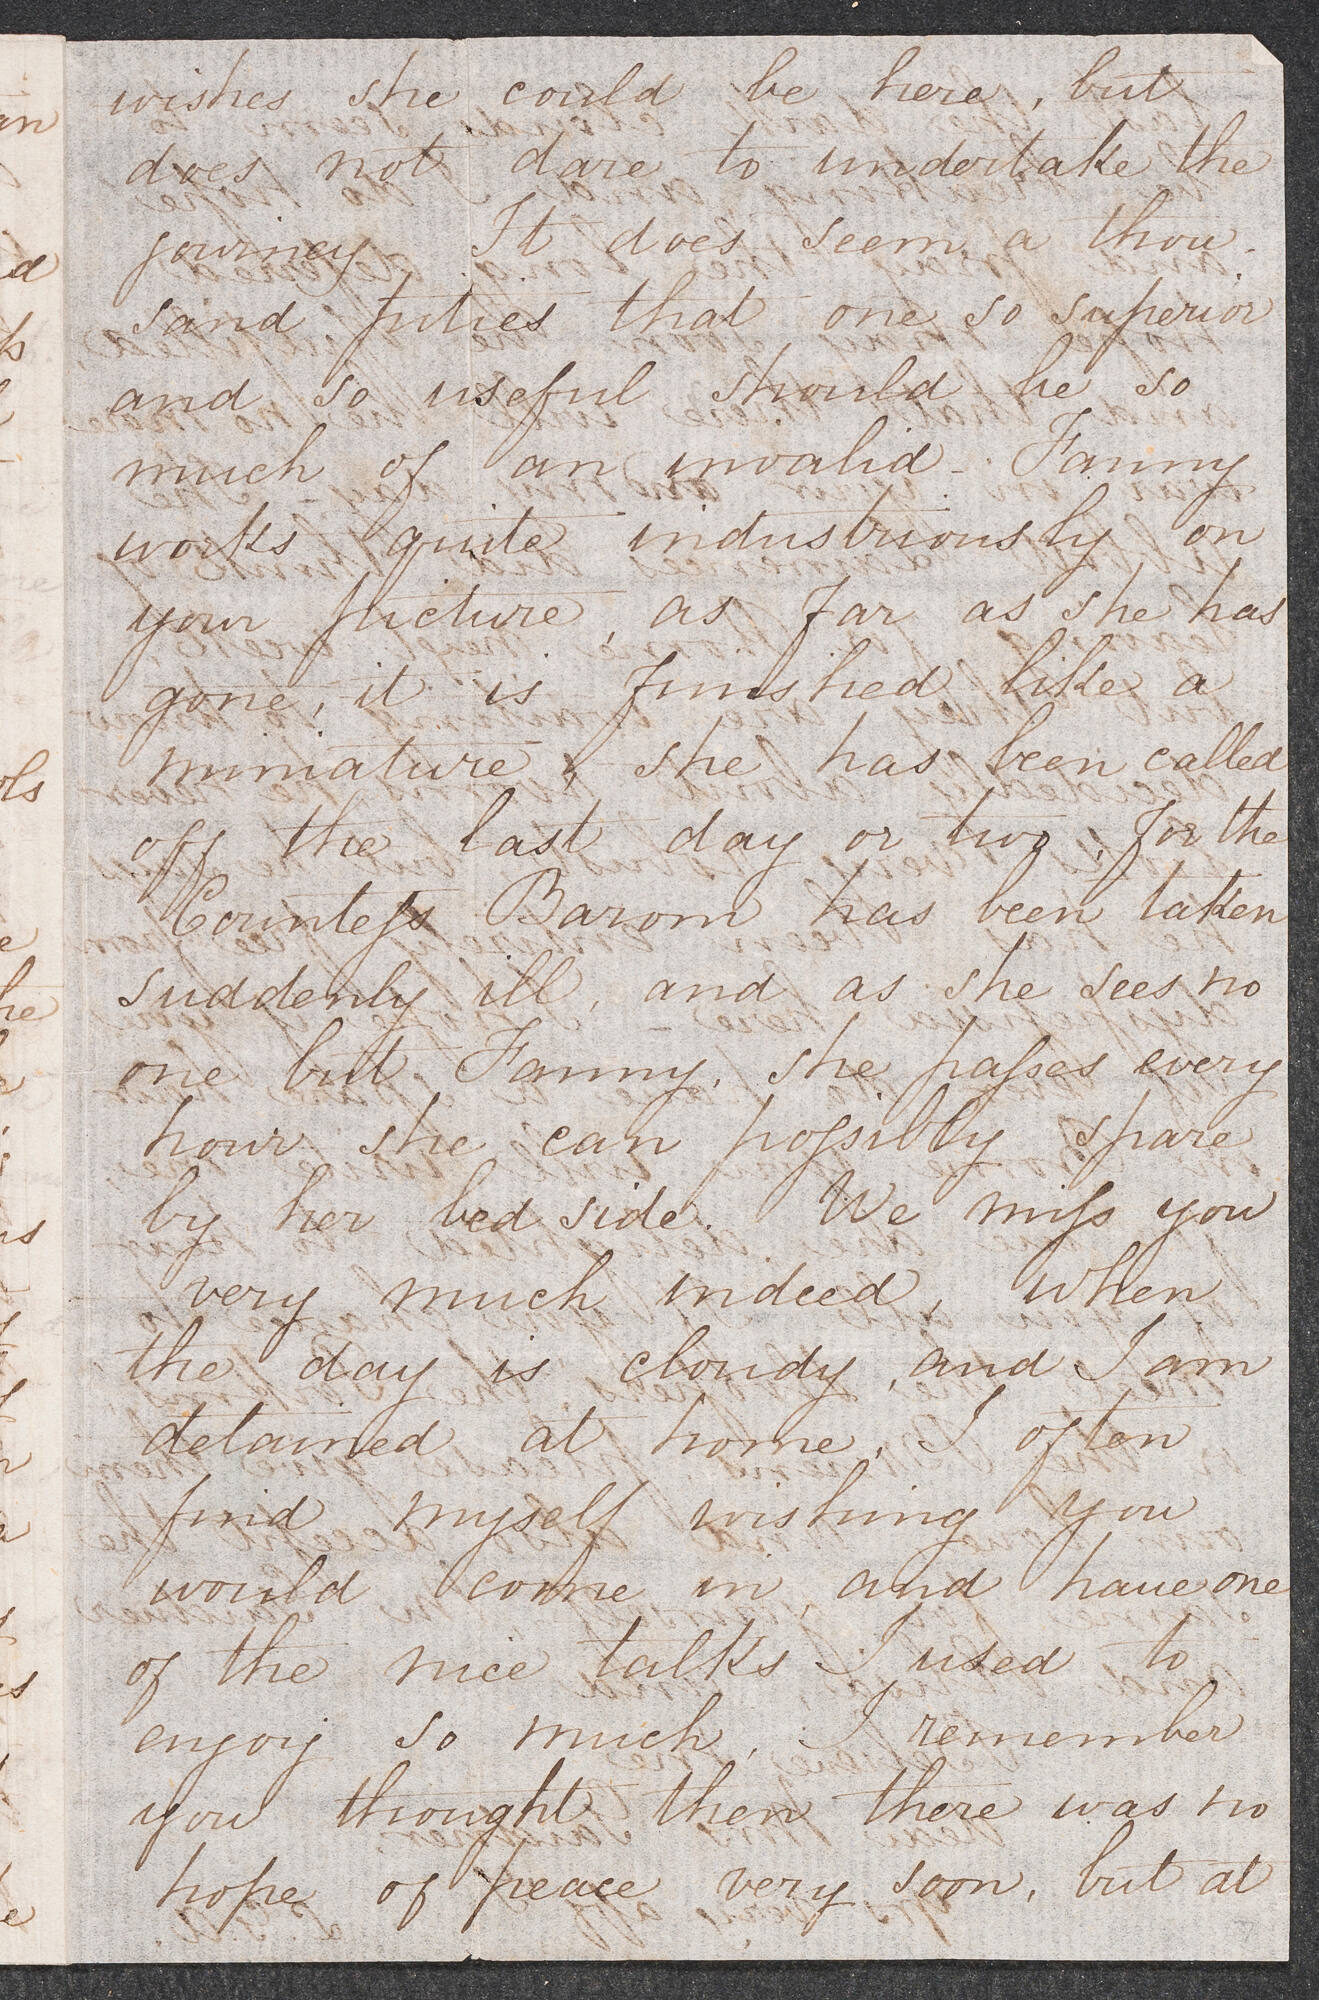 wishes she could be here, but
does not dare to undertake the
journey. It does seem a thou-
sand pities that one so superior
and so useful should be so
much of an invalid - Fanny
works quite industriously on
your picture, as far as she has
gone, it is finished like a
miniature, she has been called
off the last day or two, for the
Countess Barom has been taken
suddenly ill, and as she sees no
one but Fanny, she passes every
hour she can possibly spare
by her bed side. We miss you
very much indeed, when
the day is cloudy, and I am
detained at home, I often
find myself wishing you
would come in, and have one
of the nice talks I used to
enjoy so much, I remember
you thought then there was no
hope of peace very soon, but at